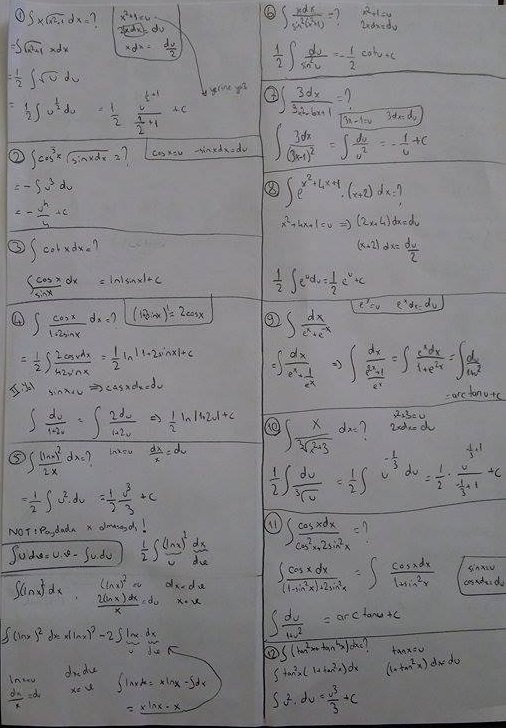 ① ∫ x√(x²+1) dx = ?
x²+1=u
2x dx = du
x dx = du/2
= ∫ √(x²+1) x dx
= 1/2 ∫ √u du
= 1/2 ∫ u^(1/2) du = 1/2 u^(1/2+1)/(1/2+1) + c
yerine yaz
② ∫ cos³x sinx dx = ?
cosx=u -sinx dx=du
= -∫ u³ du
= -u⁴/4 + c
③ ∫ cotx dx = ?
∫ cosx dx/sinx = ln|sinx|+c
④ ∫ cosx/(1+2sinx) dx = ?
(1+2sinx)' = 2cosx
= 1/2 ∫ 2cosx dx/(1+2sinx) = 1/2 ln|1+2sinx|+c
II. Yol sinx=u ⇒ cosx dx=du
∫ du/(1+2u) = ∫ 2du/(1+2u) ⇒ 1/2 ln|1+2u|+c
⑤ ∫ (lnx)²/2x dx = ?
lnx=u dx/x = du
= 1/2 ∫ u² du = 1/2 u³/3 + c
NOT: Paydada x olmasaydı!
∫u dv = u.v - ∫v.du
1/2 ∫ (lnx)² dx/x
u dv
∫(lnx)² dx
(lnx)²=u
2(lnx) dx/x = du
dx=dv
x=v
∫(lnx)² dx = x(lnx)² - 2∫ lnx dx
u dv
lnx=u
dx/x = du
dx=dv
x=v
∫lnx = xlnx - ∫dx
= xlnx - x
⑥ ∫ x dx/sin²(x²+1) = ?
x²+1=u
2x dx=du
1/2 ∫ du/sin²u = -1/2 cotu+c
⑦ ∫ 3dx/(3x²-6x+1) = ?
3x-1=u 3dx=du
∫ 3dx/(3x-1)² = ∫ du/u² = -1/u + c
⑧ ∫ e^(x²+4x+1) . (x+2) dx = ?
x²+4x+1=u ⇒ (2x+4)dx=du
(x+2) dx = du/2
1/2 ∫ e^u du = 1/2 e^u + c
⑨ ∫ dx/(e^x+e^-x)
e^x=u e^x dx=du
= ∫ dx/(e^x+1/e^x) ⇒ ∫ dx/((e^2x+1)/e^x) = ∫ e^x dx/(1+e^2x) = ∫ du/(1+u²)
= arc tan u+c
⑩ ∫ x/∛(x²+3) dx = ?
x²+3=u
2x dx=du
1/2 ∫ du/∛u = 1/2 ∫ u^(-1/3) du = 1/2 . u^(-1/3+1)/(-1/3+1) + c
⑪ ∫ cosx dx/(cos²x+2sin²x) = ?
∫ cosx dx/((1-sin²x)+2sin²x) = ∫ cosx dx/(1+sin²x)
sinx=u
cosx dx=du
∫ du/(1+u²) = arc tan u + c
⑫ ∫ (tan²x+tan⁴x) dx = ?
tanx=u
∫ tan²x (1+tan²x) dx
(1+tan²x) dx=du
∫ u². du = u³/3 + c